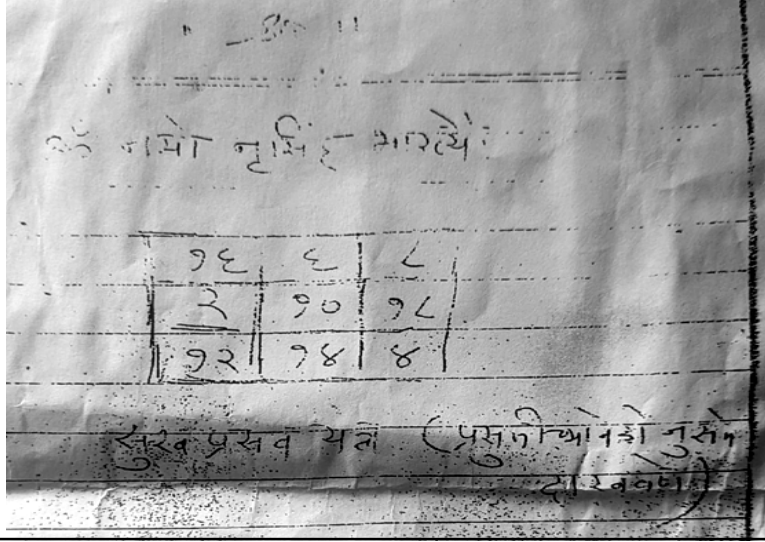 ॐ नमो नृसिंह भारत्यै:
१६ ६ ८
२ १० १८
१२ १४ ४
सुख प्रसव यंत्र (प्रसुतीच्या नुसते
दाखवणे)